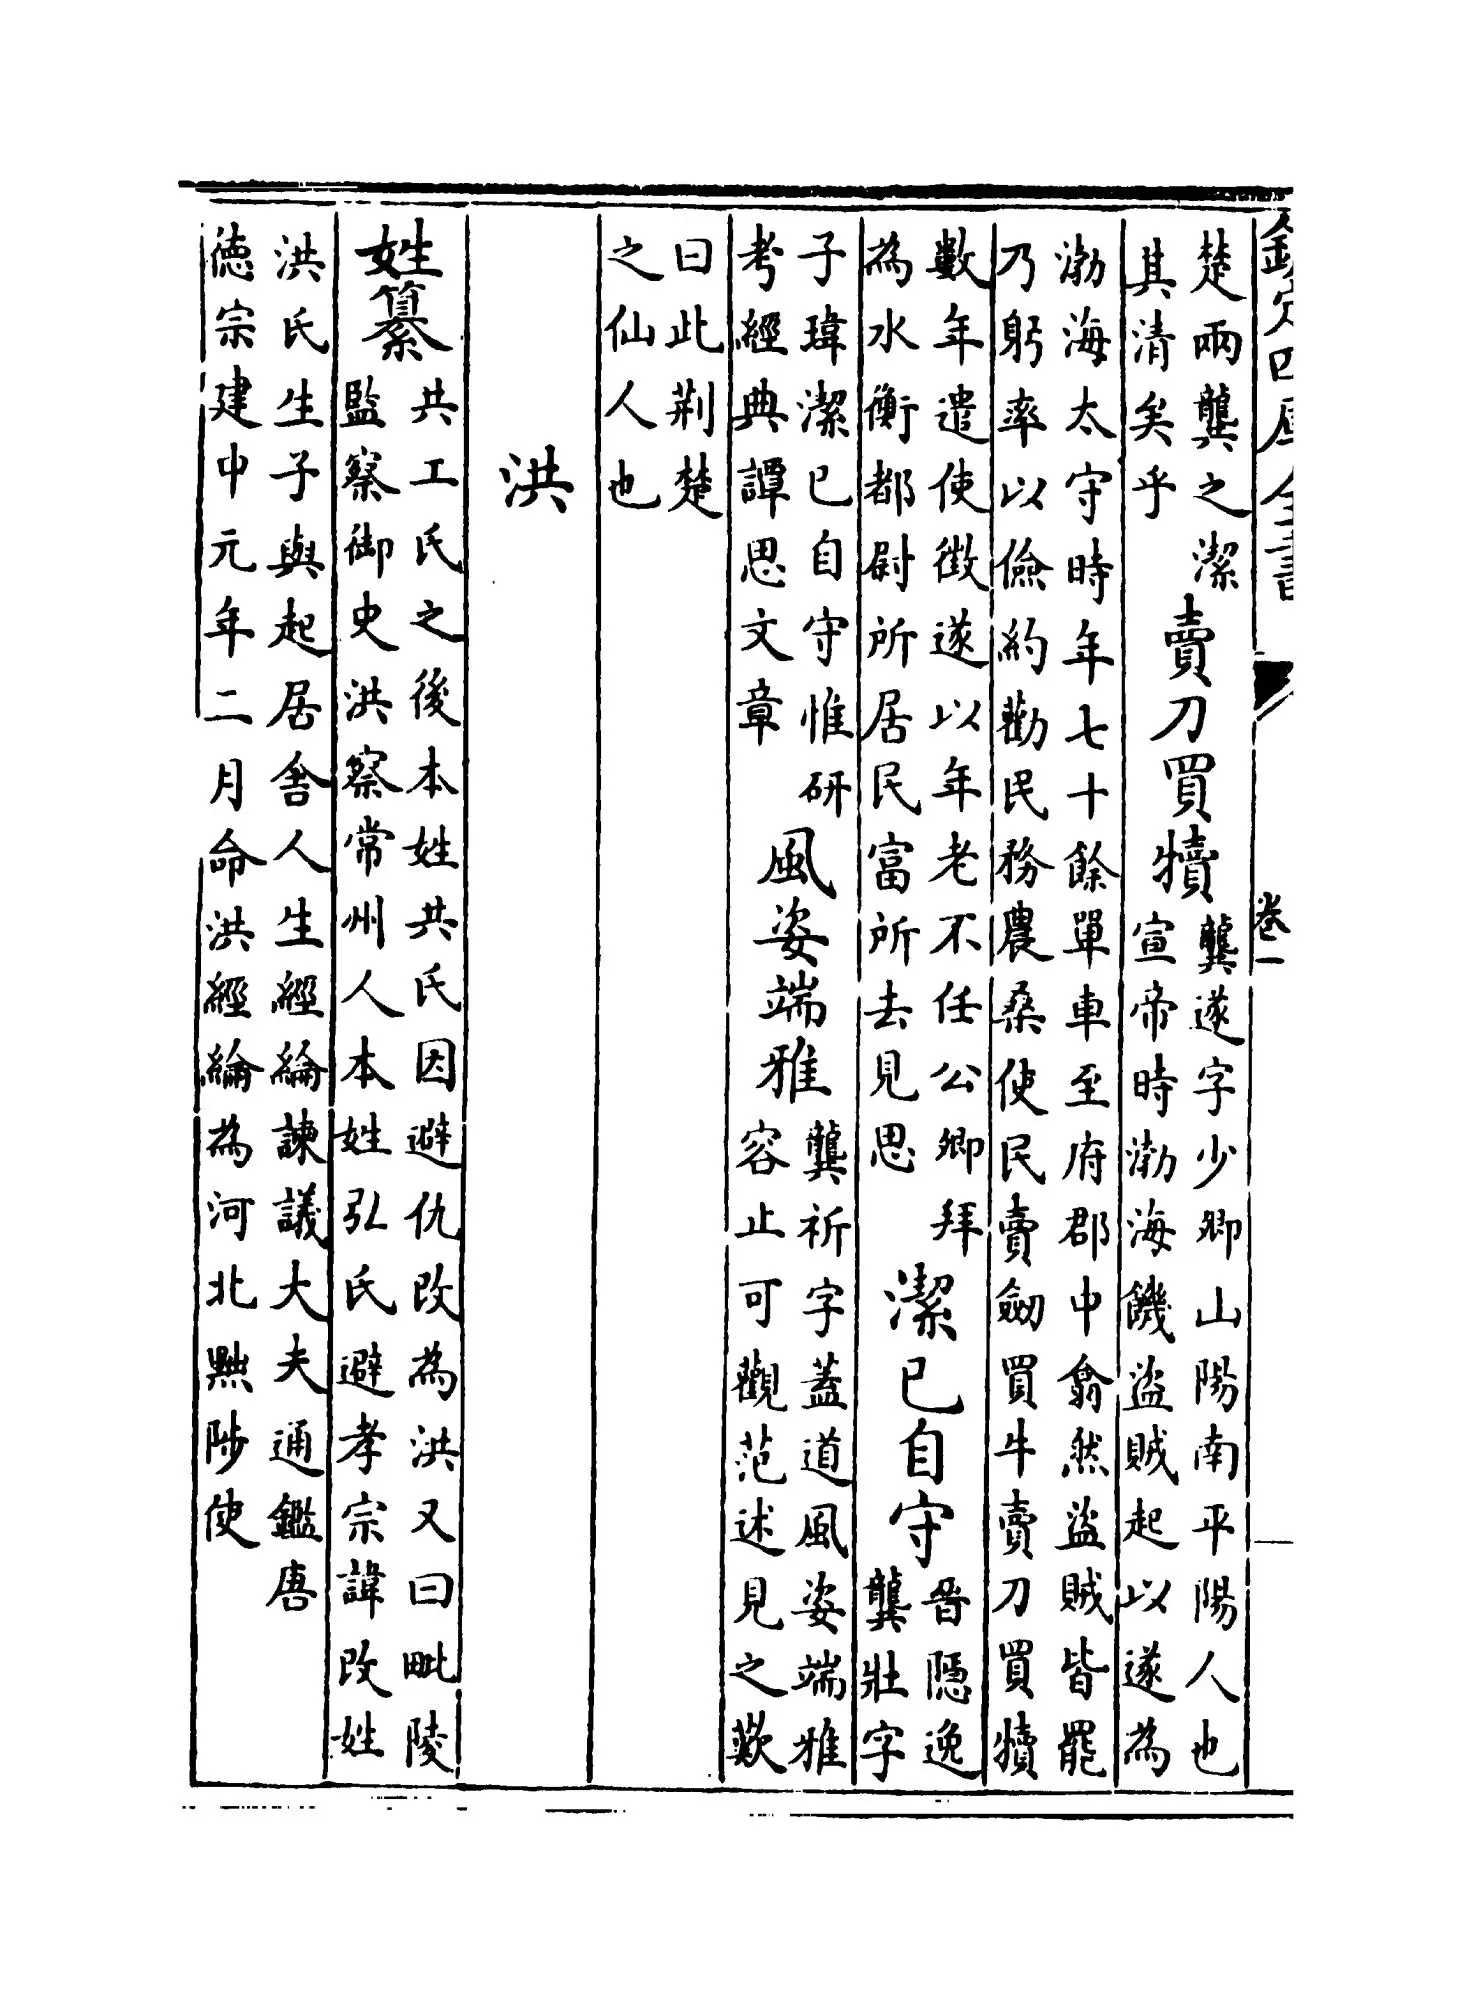 欽定四庫全書
卷一
楚兩龔之潔
其清矣乎
賣刀買犢
龔遂字少卿山陽南平陽人也
宣帝時渤海饑盜賊起以遂為
渤海太守時年七十餘單車至府郡中翕然盜賊皆罷
乃躬率以儉約勸民務農桑使民賣劒買牛賣刀買犢
數年遣使徵遂以年老不任公卿拜
為水衡都尉所居民富所去見思
潔已自守
晉隱逸
龔壯字
子瑋潔已自守惟研
考經典譚思文章
風姿端雅
龔祈字蓋道風姿端雅
容止可觀范述見之歎
曰此荆楚
之仙人也
洪
姓纂
共工氏之後本姓共氏因避仇改為洪又曰毗陵
監察御史洪察常州人本姓弘氏避孝宗諱改姓
洪氏生子與起居舍人生經綸諫議大夫通鑑唐
德宗建中元年二月命洪經綸為河北黜陟使